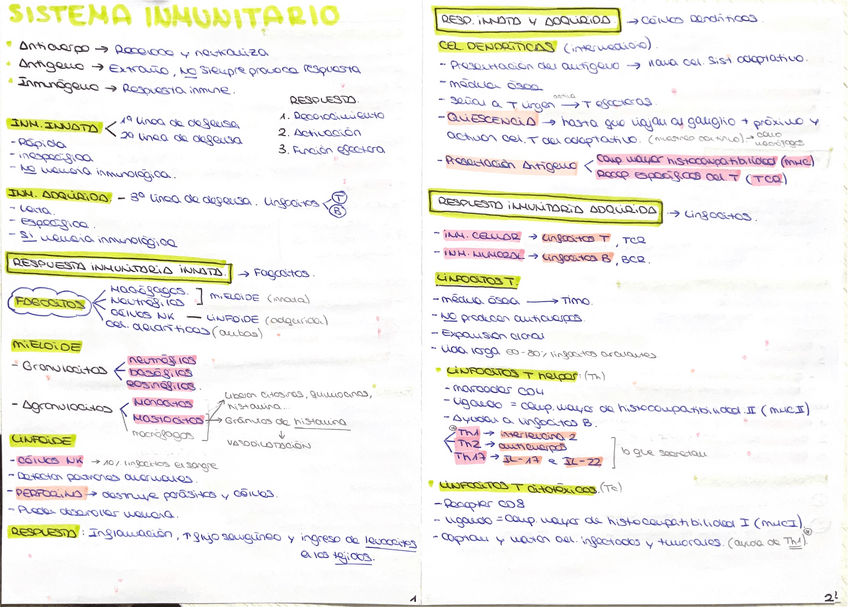 SISTEMA INMUNITARIO
• Anticuerpo → Reconoce y neutraliza
• Antígeno → Extraño, NO siempre provoca respuesta
• Inmunógeno → Respuesta inmune.
RESPUESTA
1. Reconocimiento
2. Activación
3. Función efectora
INM. INNATA < 1ª línea de defensa
2ª línea de defensa
- Rápida
- inespecífica
- No memoria inmunológica.
INM. ADQUIRIDA - 3ª línea de defensa. Linfocitos < T
B
- Lenta.
- Específica.
- Sí memoria inmunológica
RESPUESTA INMUNITARIA INNATA. → Fagocitos.
FAGOCITOS
Macrófagos
Neutrófilos ] MIELOIDE (innata)
Células NK — LINFOIDE (adquirida)
Cél. dendríticas (ambas)
MIELOIDE
- Granulocitos < neutrófilos
basófilos
eosinófilos
- Agranulocitos < Monocitos
Mastocitos
macrófagos
Liberan citocinas, quimiocinas,
histamina...
→ Gránulos de histamina
↓
VASODILATACIÓN
LINFOIDE
- Células NK → 10% linfocitos en sangre
- Detectar patrones anormales.
- PERFORINA → destruye parásitos y células.
- Pueden desarrollar memoria.
RESPUESTA: Inflamación, ↑ flujo sanguíneo y ingreso de leucocitos
en los tejidos.
1
RESP. INNATA Y ADQUIRIDA → Células Dendríticas.
CEL. DENDRÍTICAS (intermedio).
- Presentación del antígeno → llama cel. Sist adaptativo.
- médula ósea
- Señal a T virgen → T efectoras.
- QUIESCENCIA → hasta que viajan al ganglio + próximo y
activan cel. T del adaptativo.
- Presentación Antígeno < Comp mayor histocompatibilidad (MHC)
Recep específicos cel T (TCR)
RESPUESTA INMUNITARIA ADQUIRIDA → Linfocitos.
- INM. CELULAR → Linfocitos T, TCR
- INM. HUMORAL → Linfocitos B, BCR.
LINFOCITOS T.
- Médula ósea → Timo.
- NO producen anticuerpos.
- Expansión clonal
- Vida larga 60-80% linfocitos circulantes
• LINFOCITOS T helper. (Th)
- marcador CD4
- Ligando = comp. mayor de histocompatibilidad II (MHC II)
- Ayudan a linfocitos B.
Th1 → interleucina 2
Th2 → anticuerpos
Th17 → IL-17 e IL-22
] lo que secretan
• LINFOCITOS T citotóxicos. (Tc)
- Receptor CD8
- Ligando = Comp mayor de histocompatibilidad I (MHC I).
- Captan y matan cel. infectadas y tumorales. (ayuda de Th1)
2